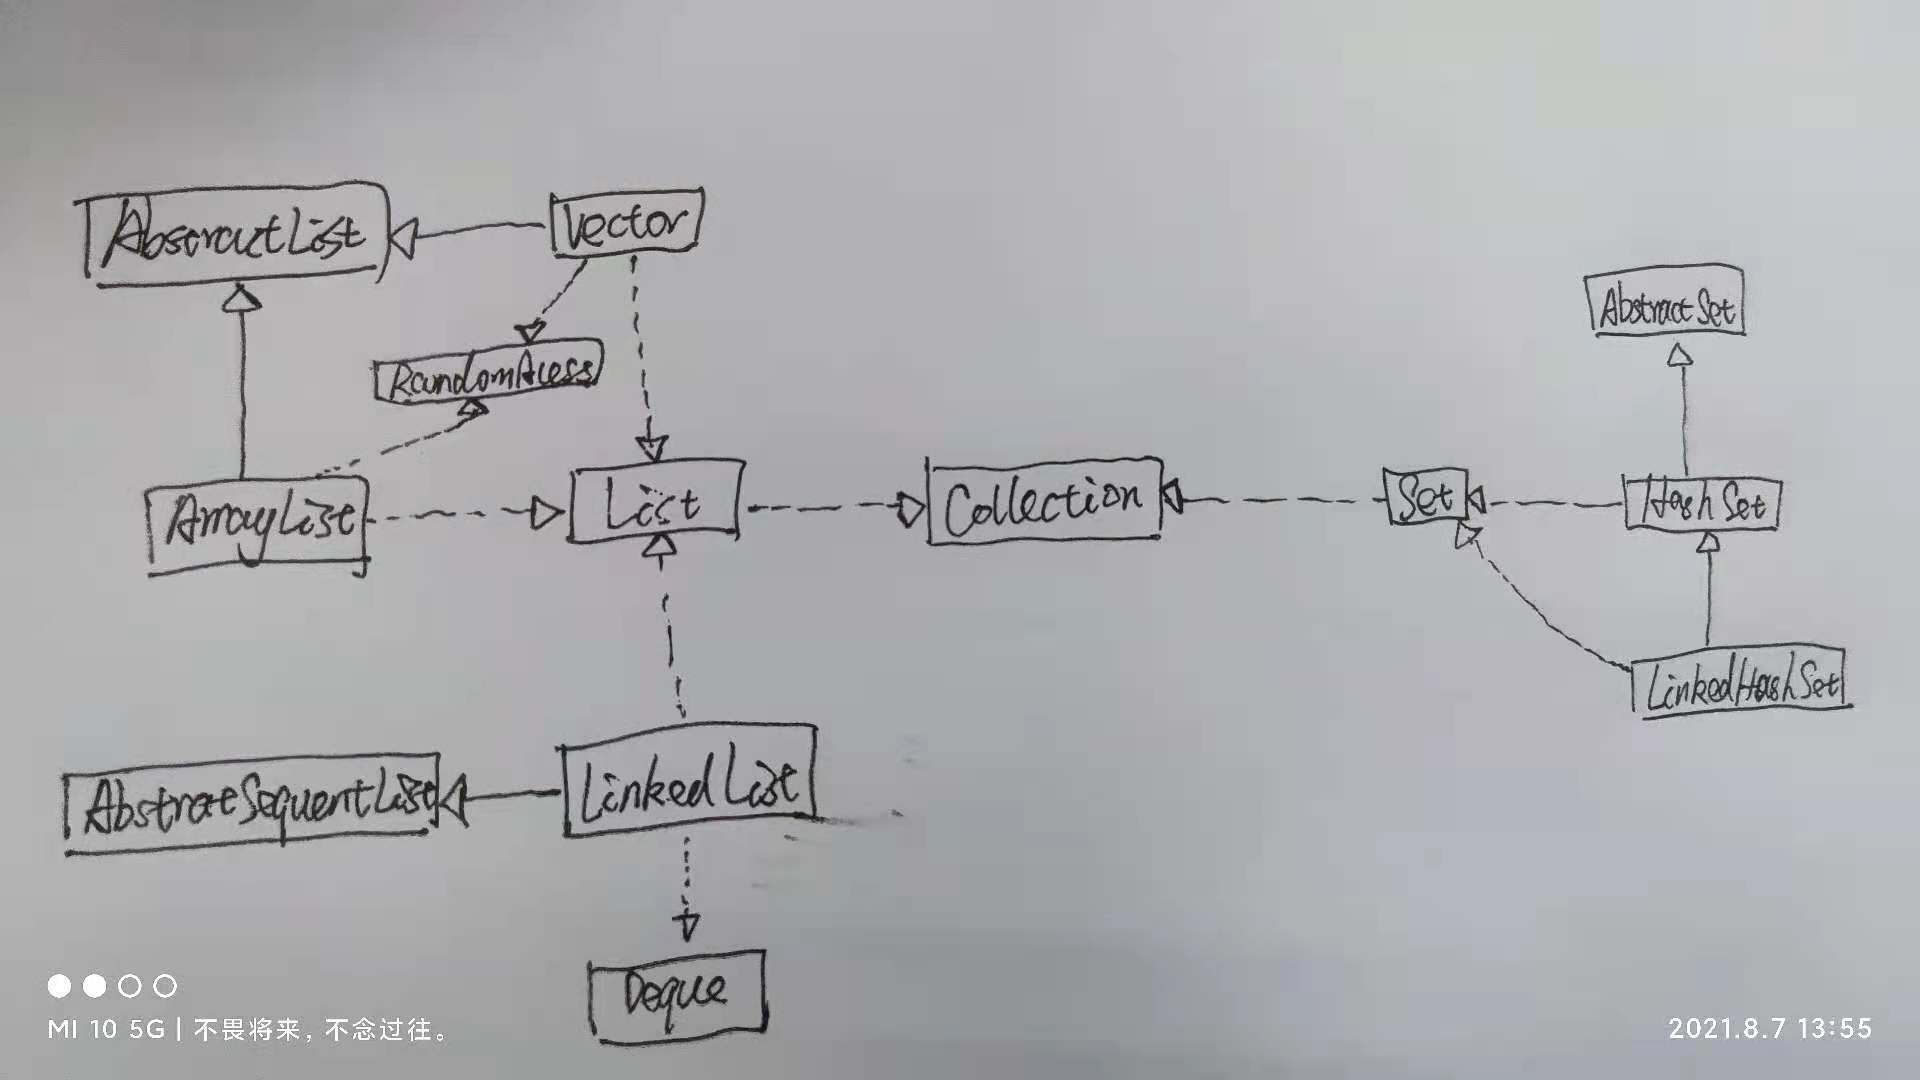 AbstractList
Vector
AbstractSet
RandomAcess
ArrayList
List
Collection
Set
HashSet
LinkedHashSet
AbstrateSequentList
LinkedList
Deque
MI 10 5G | 不畏将来, 不念过往。
2021.8.7 13:55